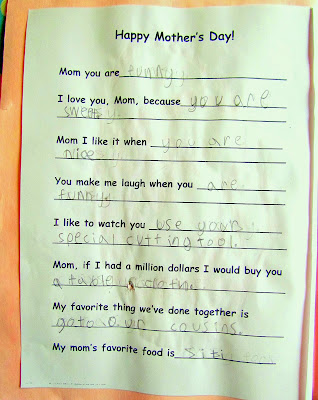 Happy Mother's Day!
Mom you are funny,
I love you, Mom, because you are
sweet.
Mom I like it when you are
nice
You make me laugh when you are
funny
I like to watch you use your
special cutting tool.
Mom, if I had a million dollars I would buy you
a table
My favorite thing we've done together is
goto our cousins.
My mom's favorite food is